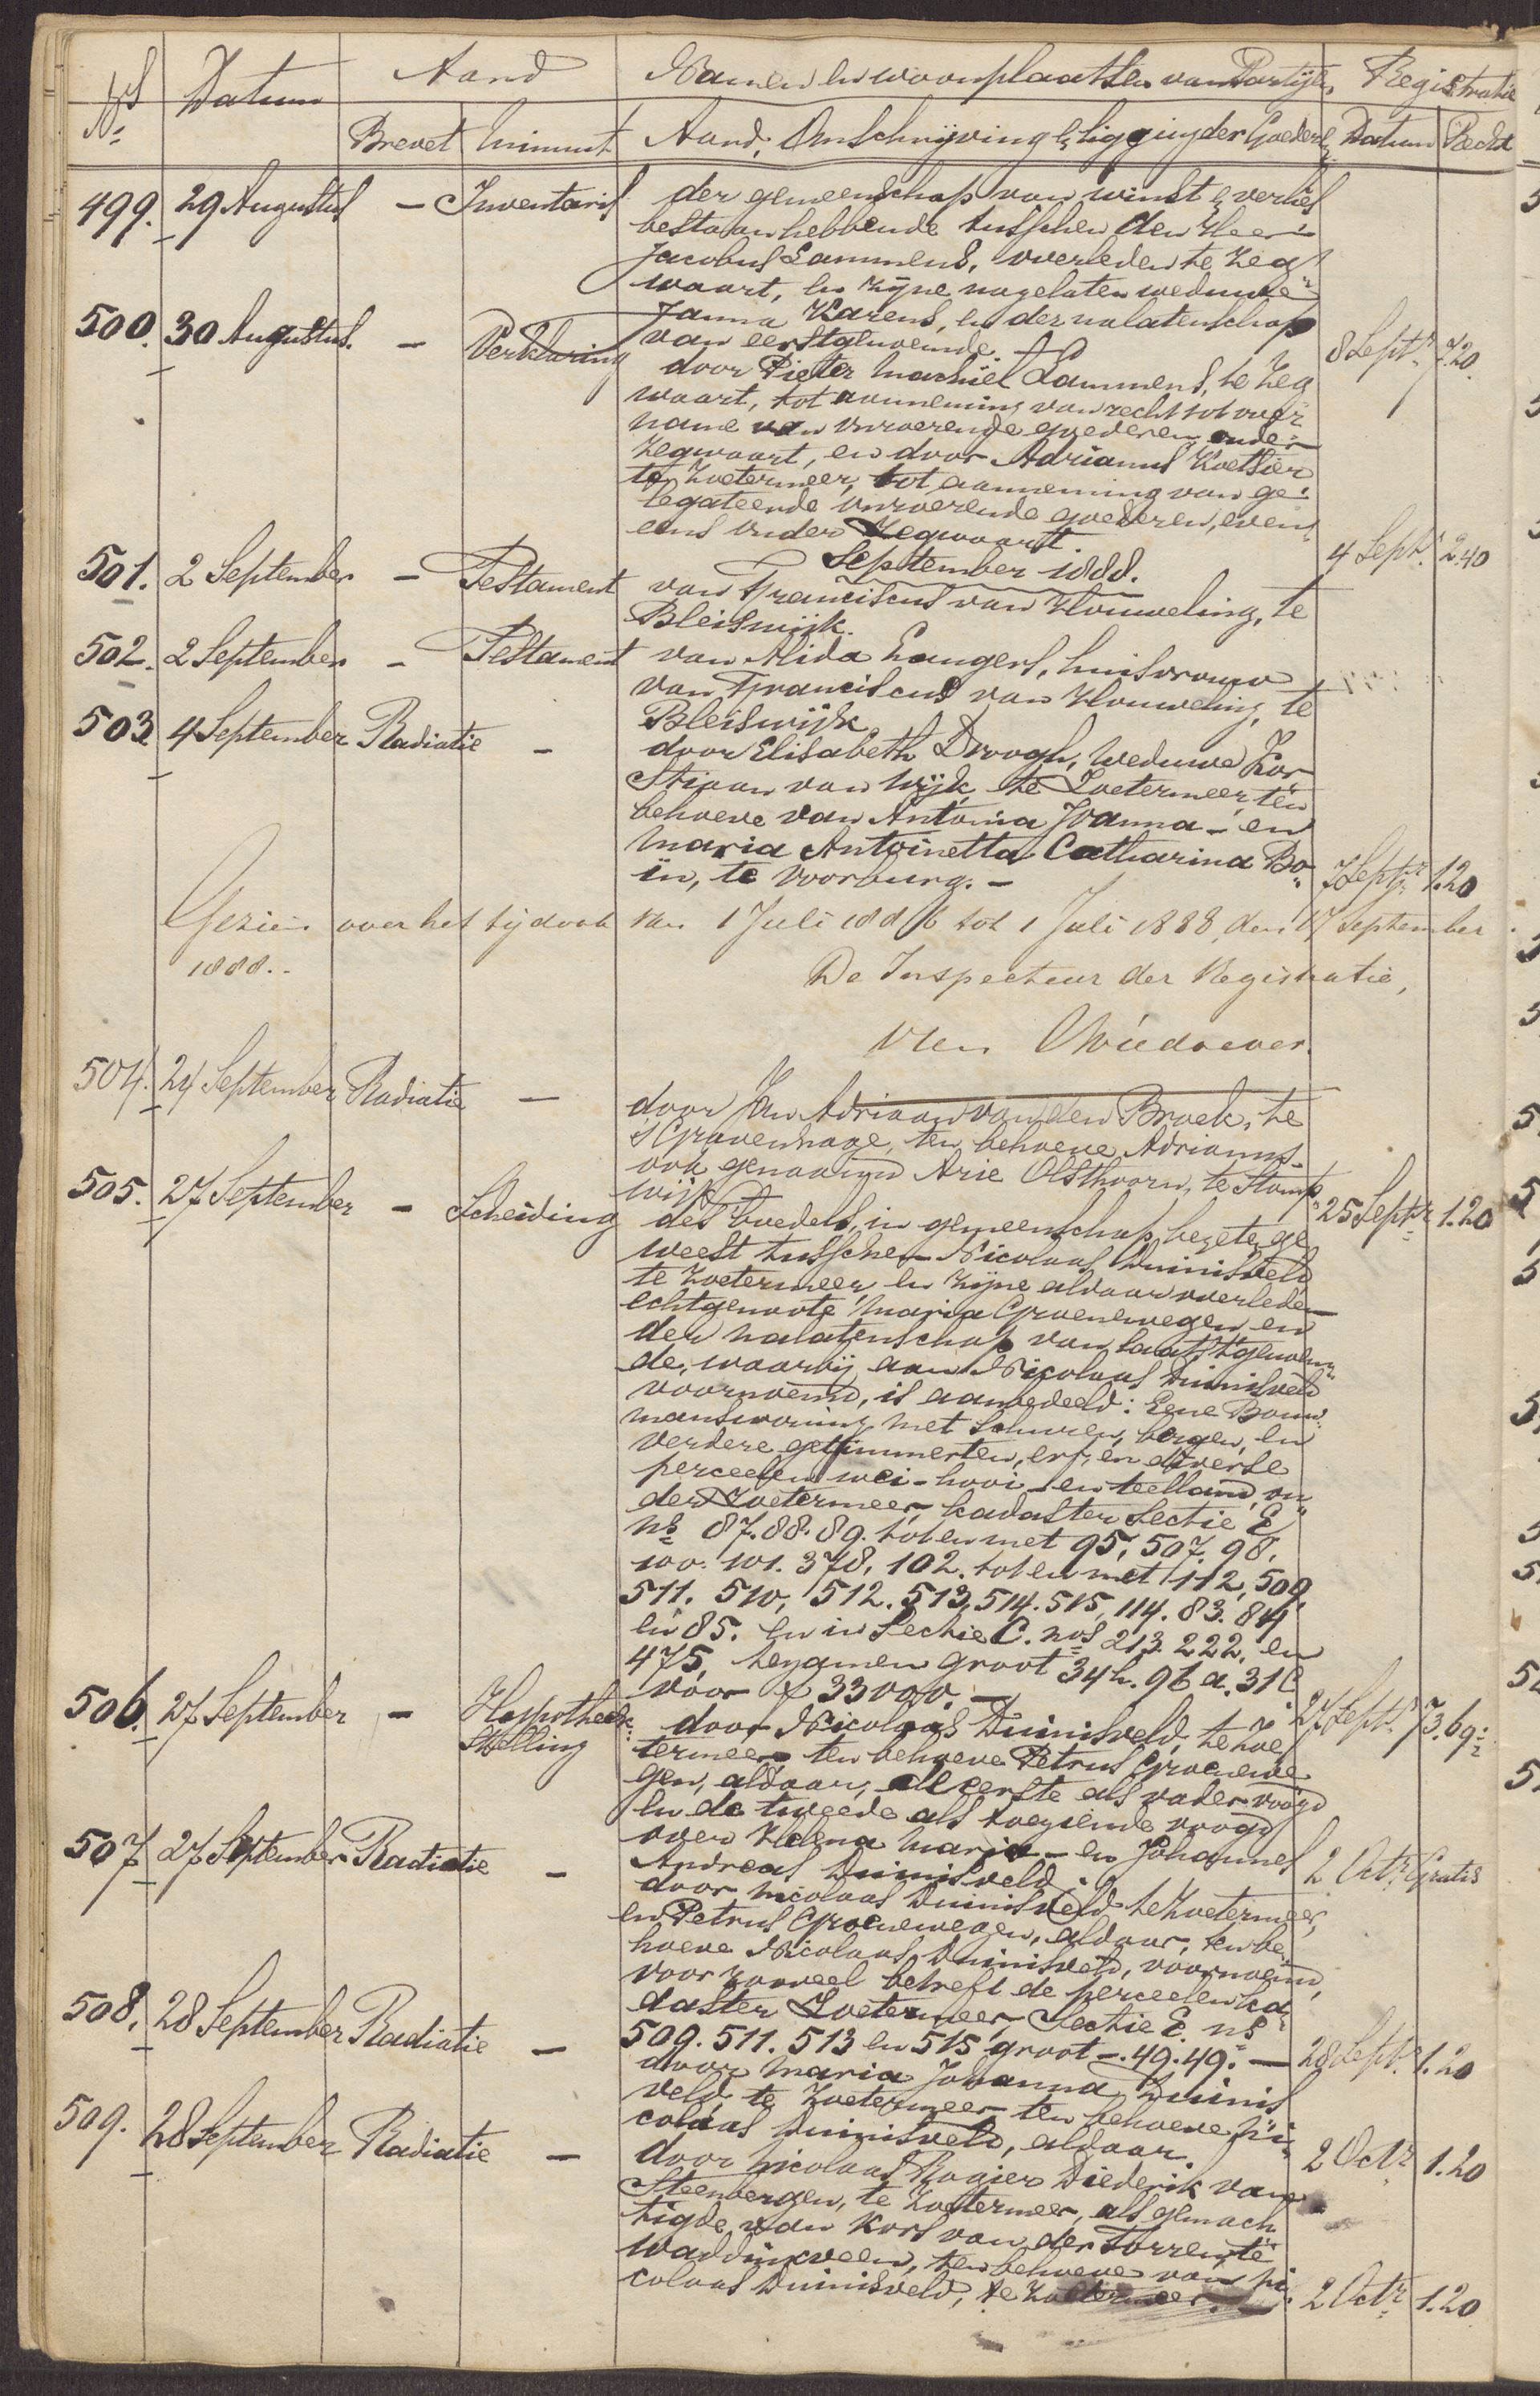 No. Datum Aard Namen en woonplaatsen van Partijen, Registratie
Brevet Minuut Aard, Omschrijving & ligging der Goederen Datum Recht
499. 29 Augustus - Inventaris der gemeenschap van winst & verlies
bestaan hebbende tusschen den Heer
Jacobus Lammens, overleden te Zeg"
waart, en zijne nagelaten weduwe
Janna Karens, en der nalatenschap
van eerstgenoemde. 8 Septr 7.20.
500. 30 Augustus. - Verklaring door Pieter Machiel Lammens, te Zeg
waart, tot aanneming van recht tot over
name van onroerende goederen onder
Zegwaart, en door Adrianus Koetsier
te Zoetermeer, tot aanneming van ge-
legateerde onroerende goederen, even
eens onder Zegwaart. 4 Septr. 2.40
September 1888.
501. 2 September - Testament van Franciscus van Houweling, te
Bleiswijk.
502. 2 September - Testament van Alida Langers, huisvrouw
van Franciscus van Houweling, te
Bleiswijk
503 4 September Radiatie - door Elisabeth Droogh, weduwe Kor
stiaan van Wijk te Zoetermeer, ten
behoeve van Antonia Joanna - en
Maria Antoinetta Catharina Bo"
in, te Voorburg. - 7 Septr 1.20
Gezien over het tijdvak van 1 Juli 1886 tot 1 Juli 1888, den 17 September
1888..
De Inspecteur der Registratie,
504. 24 September Radiatie - door Jan Adriaan van den Broek, te
's Gravenhage, ten behoeve Adrianus-
ook genaamd Arie Olsthoorn, te Stomp
wijk 25 Septr 1.20
505. 27 September - Scheiding des boedels, in gemeenschap bezeten ge
weest tusschen Nicolaas Duinisveld
te Zoetermeer en zijne aldaar overleden
echtgenoote Maria Groenewegen en
der nalatenschap van laatstgenoem"
de, waarbij aan Nicolaas Duinisveld
voornoemd, is aanbedeeld: Eene Bouw"
manswoning met schuren, bergen, en
verdere getimmerten, erf, en diverse
perceelen wei- hooi- en teelland, on"
der Zoetermeer, kadaster Sectie E
Ns 87. 88. 89. tot en met 95, 507. 98,
100. 101. 378, 102. tot en met 112, 509,
511. 510, 512. 513, 514. 515, 114. 83. 84
en 85. en in Sectie C. nos 213. 222. en
475, tezamen groot 34 h. 96 a. 31 c
voor ƒ 33000. - 27 Septr 73.69½
506. 27 September - Hypotheek-
stelling door Nicolaas Duinisveld, te Zoe
termeer ten behoeve Petrus Groenewe
gen, aldaar, de eerste als vader voogd
en de tweede als toeziende voogd
over Helena Maria - en Johannes
Andreas Duinisveld. 2 Octr Gratis
507 27 September Radiatie - door Nicolaas Duinisveld te Zoetermeer,
en Petrus Groenewegen, aldaar, ten be"
hoeve Nicolaas Duinisveld, voornoemd,
voor zooveel betreft de perceelen ka"
daster Zoetermeer, Sectie E. ns
509. 511. 513 en 515 groot -. 49. 49. - 28 Septr 1.20
508. 28 September Radiatie - door Maria Johanna Duinis
veld te Zoetermeer ten behoeve Ni"
colaas Duinisveld, aldaar. 2 Octr 1.20
509. 28 September Radiatie - door Nicolaas Rogier Diederik van
Steenbergen, te Zoetermeer, als gemach"
tigde van Kors van der Torren te
Waddinxveen, ten behoeve van Ni.
colaas Duinisveld, te Zoetermeer. 2 Octr 1.20